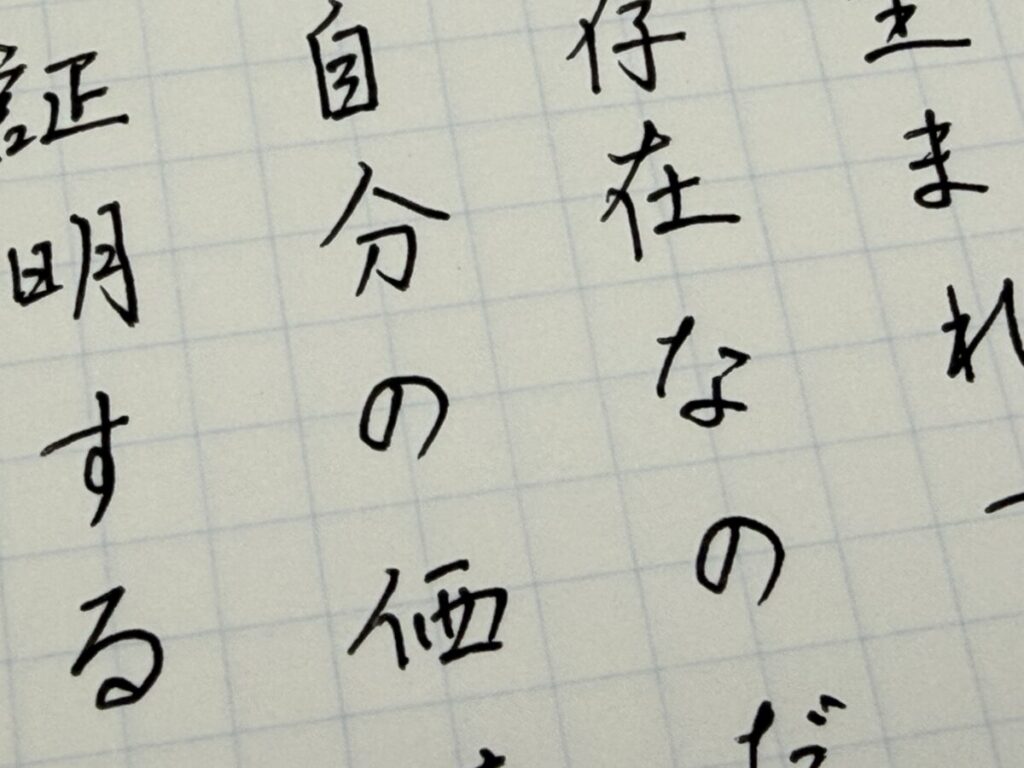 生まれ
存在なのだ
自分の価
証明する